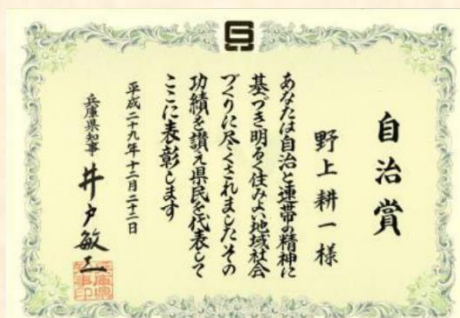 自治賞
野上耕一様
あなたは自治と連帯の精神に
基づき明るく住みよい地域社会
づくりに尽くされましたその
功績を讃え県民を代表して
ここに表彰します
平成二十九年十二月二十二日
兵庫県知事 井戸敏三
兵庫県知事印